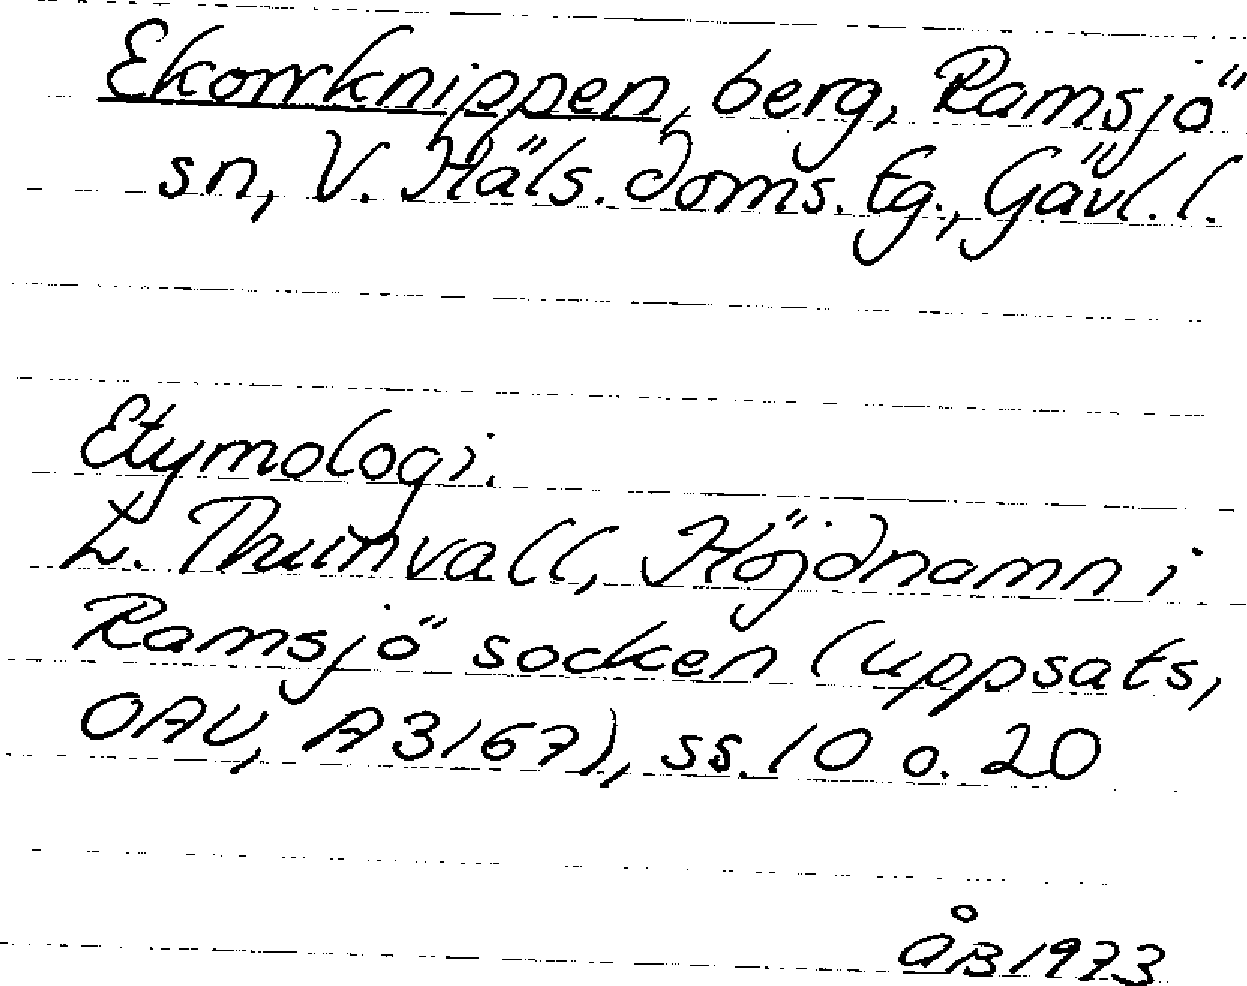 Ekorrknippen, berg, Ramsjö
sn, V. Häls. doms. tg., Gävl. l.
Etymologi.
L. Thunvall, Höjdnamn i
Ramsjö socken (uppsats,
OAU, A3167), ss. 10 o. 20
ÅB 1973